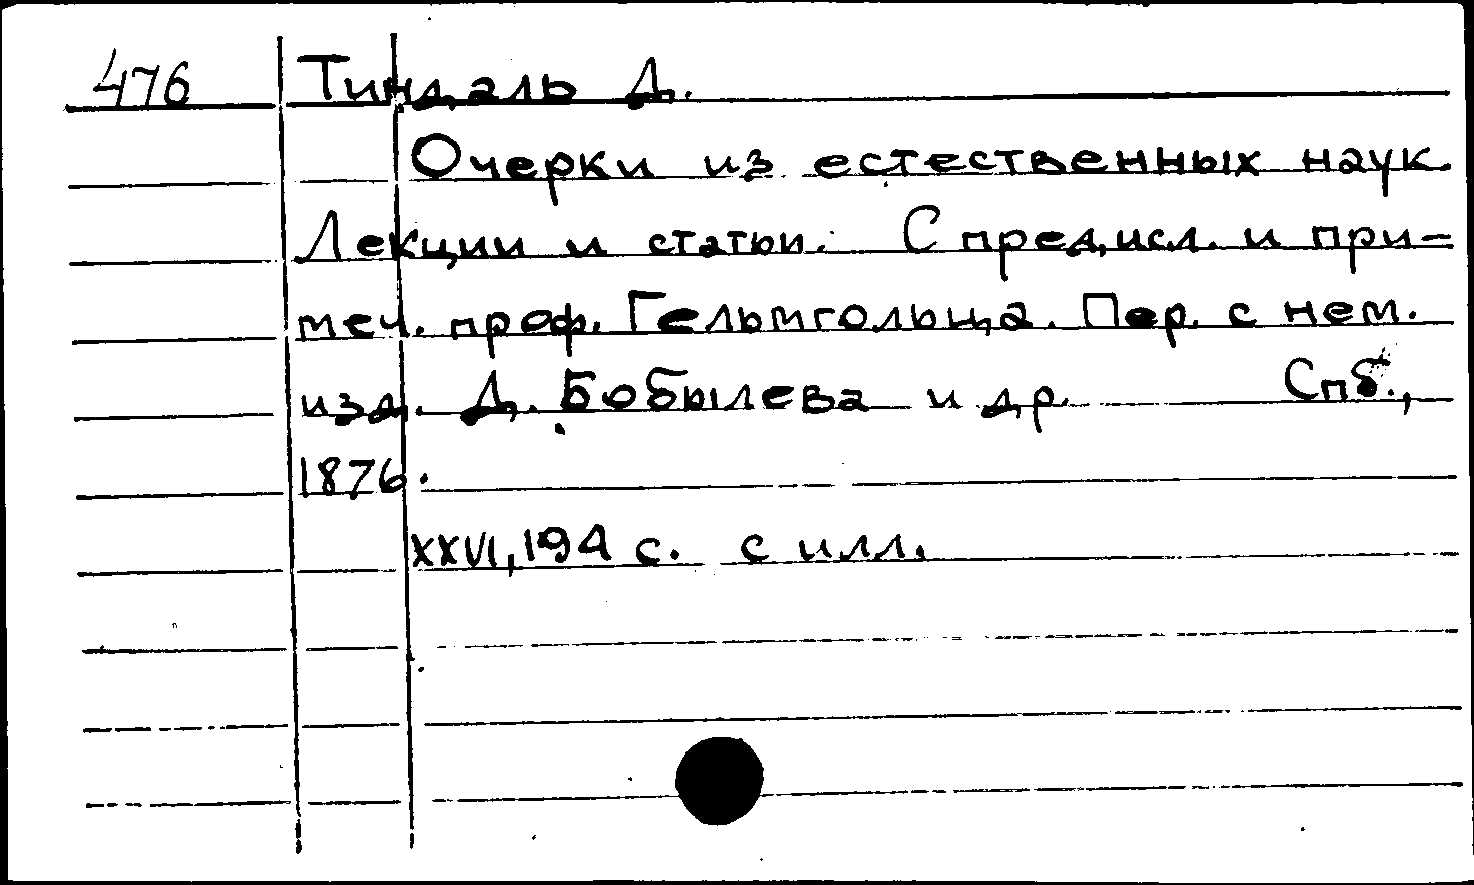 476 Тиндаль Д.
Очерки из естественных наук.
Лекции и статьи. С предисл. и при-
меч. проф. Гельмгольца. Пер. с нем.
изд. Д. Бобылева и др. Спб.,
1876.
XXVI, 194 с. с илл.